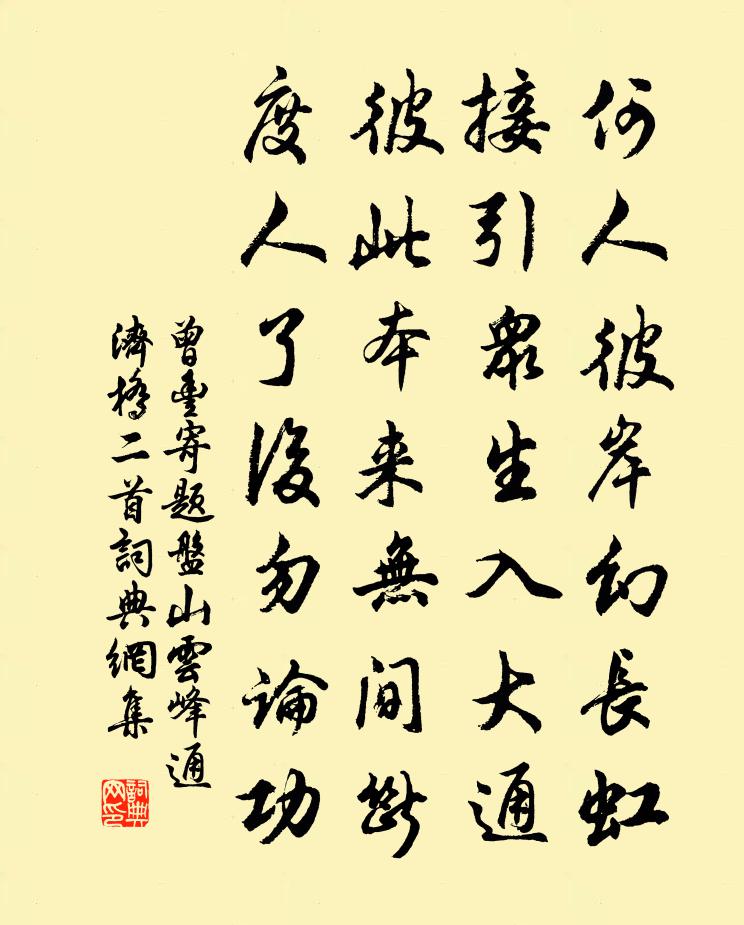 何人彼岸幻長虹
接引眾生入大通
彼此本来無間斷
度人了後勿論功
曾豐寄題盤山雲峰通
濟橋二首詞典網集
詞典网印